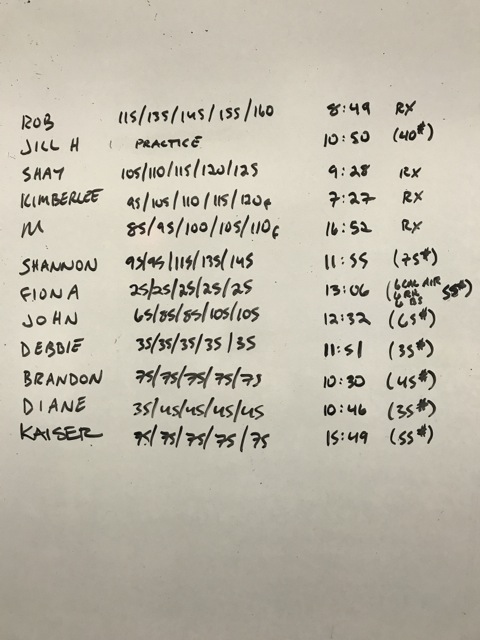 ROB 115/135/145/155/160 8:49 RX
JILL H PRACTICE 10:50 (40#)
SHAY 105/110/115/120/125 9:28 RX
KIMBERLEE 95/105/110/115/120¢ 7:27 RX
M 85/95/100/105/110¢ 16:52 RX
SHANNON 95/95/115/135/145 11:55 (75#)
FIONA 25/25/25/25/25 13:06 (6 CAL AIR 6 BS 55#)
JOHN 65/85/85/105/105 12:32 (65#)
DEBBIE 35/35/35/35/35 11:51 (35#)
BRANDON 75/75/75/75/75 10:30 (45#)
DIANE 35/45/45/45/45 10:46 (35#)
KAISER 75/75/75/75/75 15:49 (55#)